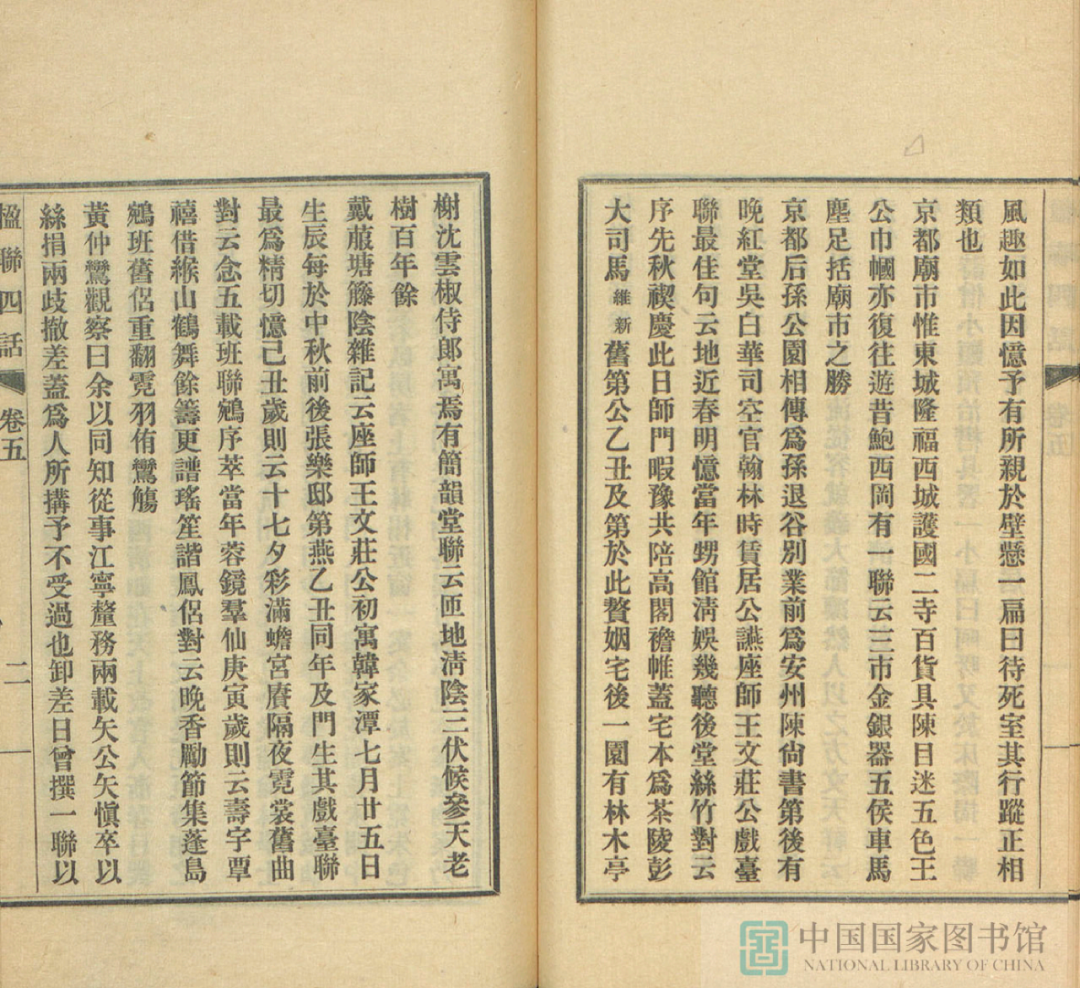 風趣如此因憶予有所親於壁懸一扁曰待死室其行蹤正相
類也
京都廟市惟東城隆福西城護國二寺百貨具陳目迷五色王
公巾幗亦復往遊昔鮑西岡有一聯云三市金銀器五侯車馬
塵足括廟市之勝
京都后孫公園相傳爲孫退谷別業前爲安州陳尙書第後有
晚紅堂吳白華司空官翰林時賃居公讌座師王文莊公戲臺
聯最佳句云地近春明憶當年甥館淸娛幾聽後堂絲竹對云
序先秋禊慶此日師門暇豫共陪高閣襜帷蓋宅本爲茶陵彭
大司馬維新舊第公乙丑及第於此贅姻宅後一園有林木亭
榭沈雲椒侍郎寓焉有簡韻堂聯云匝地淸陰三伏候參天老
樹百年餘
戴菔塘籐陰雜記云座師王文莊公初寓韓家潭七月廿五日
生辰每於中秋前後張樂邸第燕乙丑同年及門生其戲臺聯
最爲精切憶己丑歲則云十七夕彩滿蟾宮賡隔夜霓裳舊曲
對云念五載班聯鵷序萃當年蓉鏡羣仙庚寅歲則云壽宇覃
禧借緱山鶴舞餘籌更譜瑤笙諧鳳侶對云晚香勵節集蓬島
鵷班舊侶重翻霓羽侑鸞觴
黃仲鸞觀察曰余以同知從事江寧釐務兩載矢公矢愼卒以
絲捐兩歧撤差蓋爲人所搆予不受過也卸差日曾撰一聯以
楹聯四話
卷五
二
中国国家图书馆
NATIONAL LIBRARY OF CHINA